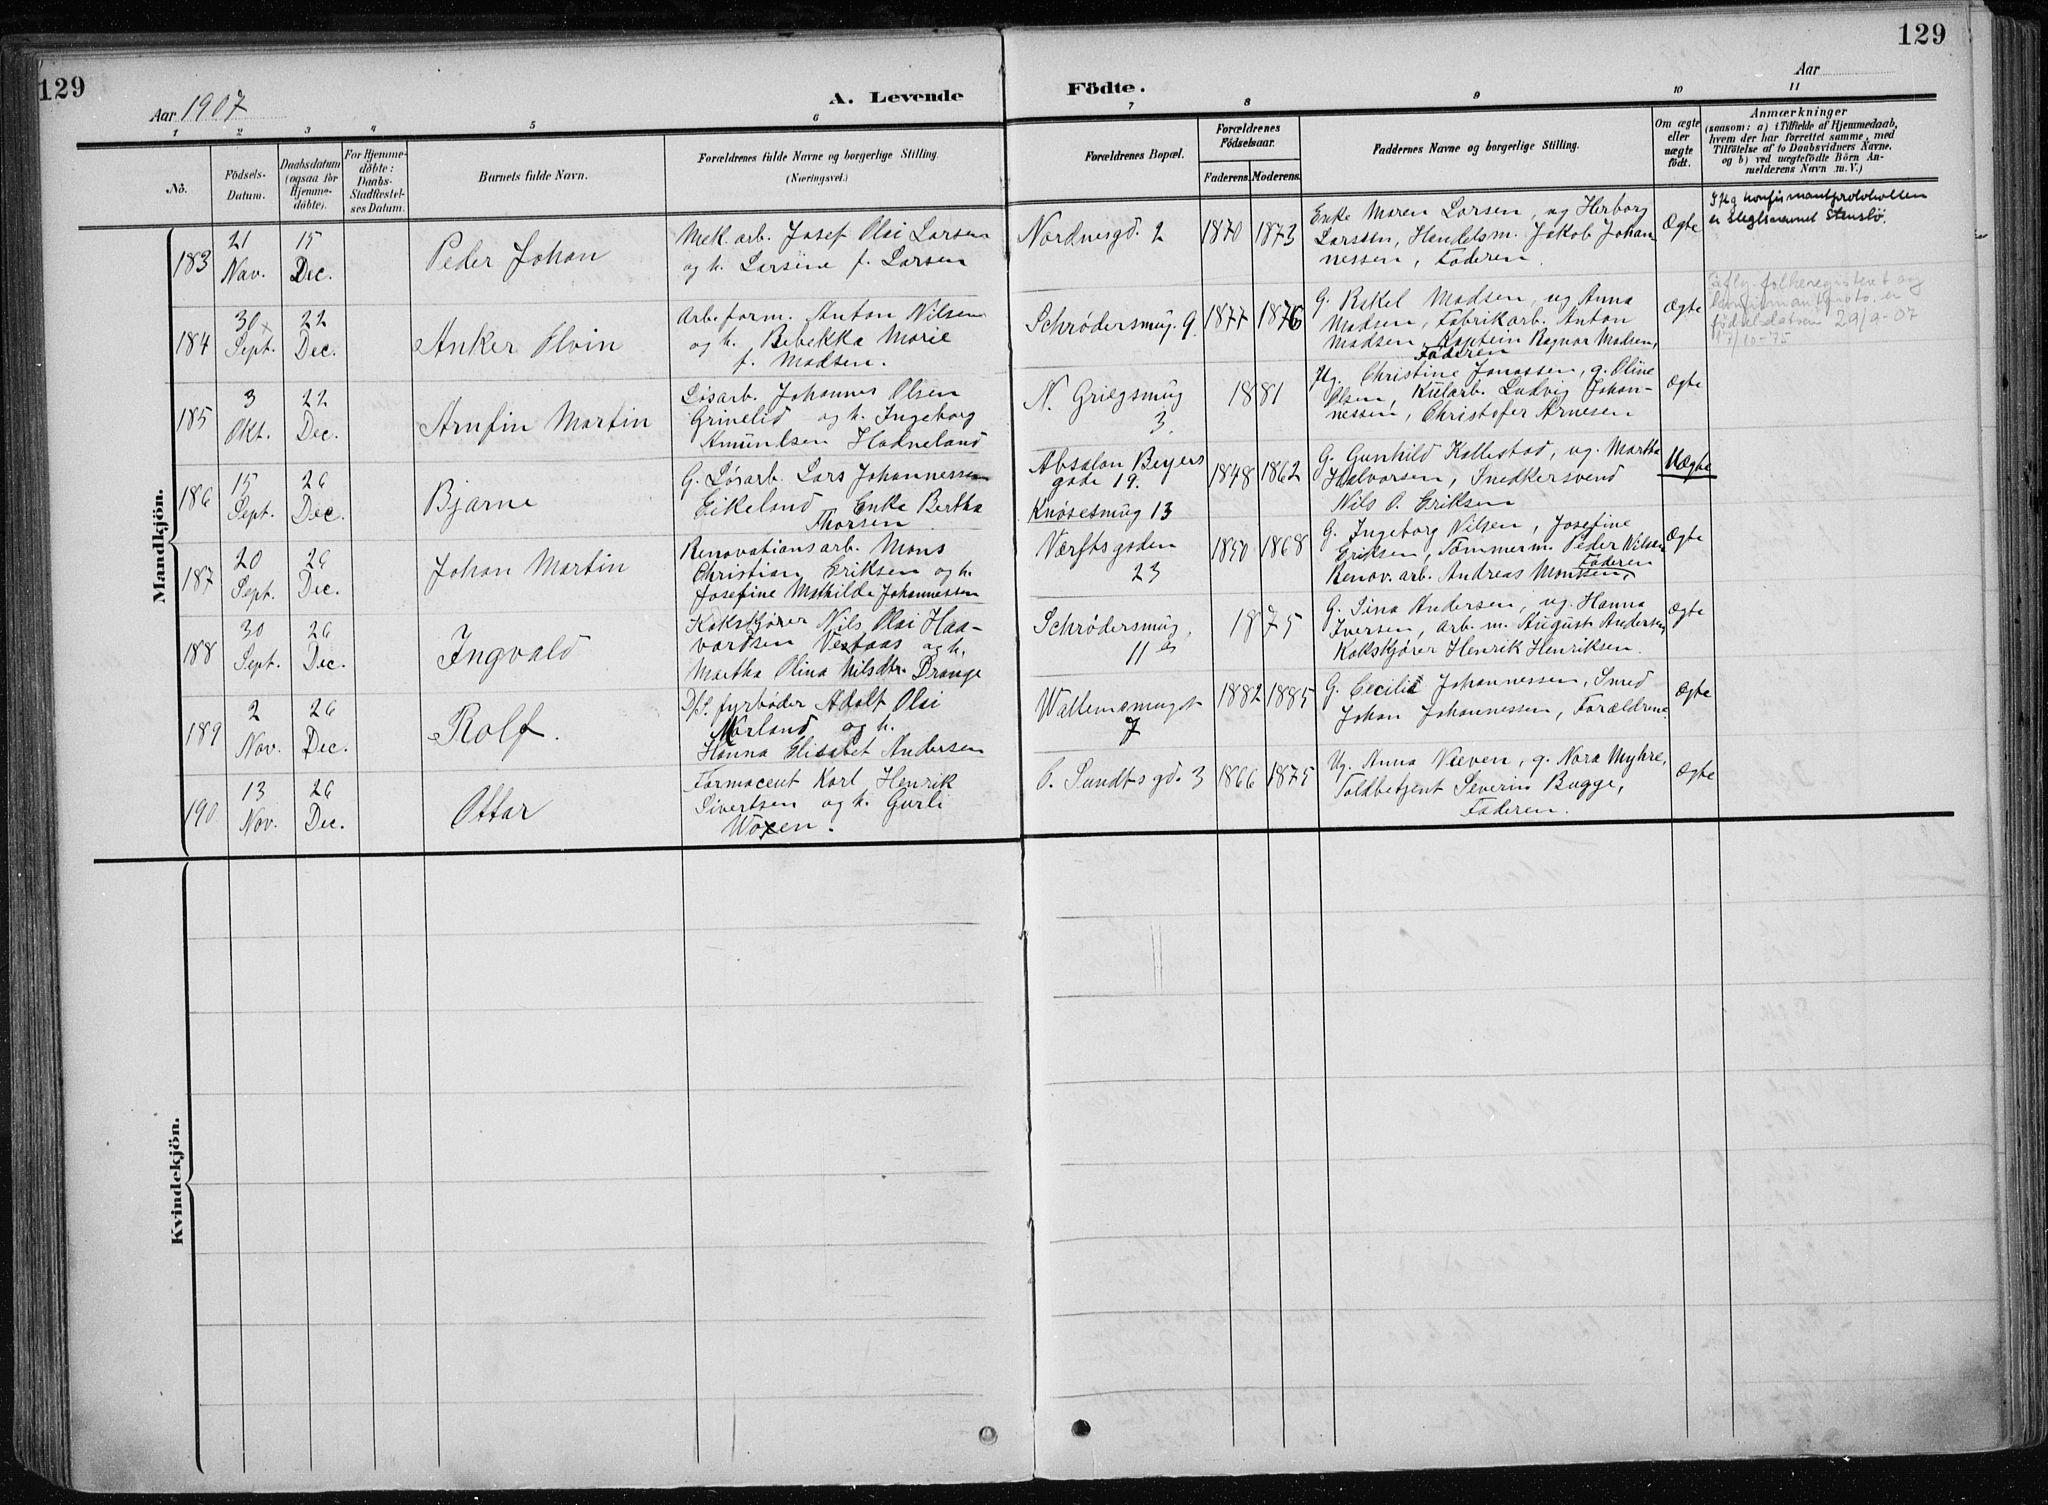 129
129
Aar 1907
A. Levende
Födte.
Aar
1
2
3
4
5
6
7
8
9
10
11
No.
Födsels-
Datum.
Daabsdatum
(ogsaa for
Hjemme-
döbte).
For Hjemme-
döbte:
Daabs-
Stadfæstel-
ses Datum.
Barnets fulde Navn.
Forældrenes fulde Navne og borgerlige Stilling.
(Næringsvei.)
Forældrenes Bopæl.
Forældrenes
Födselsaar.
Faderens.
Moderens.
Faddernes Navne og borgerlige Stilling.
Om ægte
eller
uægte
født.
Anmærkninger
(saasom: a) i Tilfælde af Hjemmedaab,
hvem der har forrettet samme, med
Tilföielse af to Daabsvidners Navne,
og b) ved uægtefödte Börn An-
melderens Navn m. V.)
Mandkjön.
183
21
Nov.
15
Dec.
Peder Johan
Mek. arb. Josef Olai Larsen
og h. Larsine f. Larsen
Nordnesgd. 2
1870
1873
Enke Maren Larsen, ug Herborg
Larssen, Handelsm. Jakob Johan-
nessen, Faderen.
Ægte
Ifkg konfirmantprotokollen
er slegtsnavnet Stenslø.
184
30 x
Sept.
22
Dec.
Anker Elvin
Arb. form. Anton Nilsen
og h. Bebekka Marie
f. Madsen.
Schrödersmug. 9.
1877
1876
G. Rakel Madsen, ug Anna
Madsen, Fabrikarb. Anton
Madsen, Kaptein Ragnar Madsen,
Faderen
Ægte
Iflg. folkeregisteret og
konfirmantproto. er
fødselsdatoen 29/9-07
17/10-75
185
3
Okt.
22
Dec.
Arnfin Martin
Løsarb. Johannes Olsen
Grinelid og h. Ingeborg
Amundsen Hadneland
N. Griegsmug
3.
1881
Ug. Christine Jonassen, g. Oline
Olsen, Kularb. Ludvig Johan-
nessen, Christofer Arnesen
Ægte
186
15
Sept.
26
Dec.
Bjarne
G. Løsarb. Lars Johannessen
Eikeland Enke Bertha
Thorsen
Absalon Beyers
gade 19.
Knøsesmug 13
1848
1862
G. Gunhild Kallestad, ug. Martha
Halvorsen, Snedkersvend
Nils O. Eriksen
Uægte
187
20
Sept.
26
Dec.
Johan Martin
Renovationsarb. Mons
Christian Eriksen og h.
Josefine Mathilde Johannessen
Værftsgaden
23
1850
1868
G. Ingeborg Nilsen, Josefine
Eriksen, Tømmerm. Peder Nilsen
Renov. arb. Andreas Monssen,
Faderen
Ægte
188
30
Sept.
26
Dec.
Ingvald
Kokskjører Nils Olai Haa-
vardsen Vestaas og h.
Martha Olina Nilsdtr. Drange
Schrödersmug.
11 a
1875
G. Sina Andersen, ug. Hanna
Iversen, arb. m. August Andersen
Kokskjører Henrik Henriksen.
Ægte
189
2
Nov.
26
Dec.
Rolf.
D/S. fyrbøder Adolf Olai
Morland og h.
Hanna Elisabet Andersen
Wallemsmuget
7
1882
1885
G. Cecilie Johannessen, Smed
Johan Johannessen, Forældrene.
Ægte
190
13
Nov.
26
Dec.
Ottar
Farmaceut Karl Henrik
Sivertsen og h. Gurli
Woxen.
C. Sundtsgd. 3
1866
1875
Ug. Anna Nieven, g. Nora Myhre,
Toldbetjent Severin Bugge,
Faderen.
Ægte
Kvindekjön.